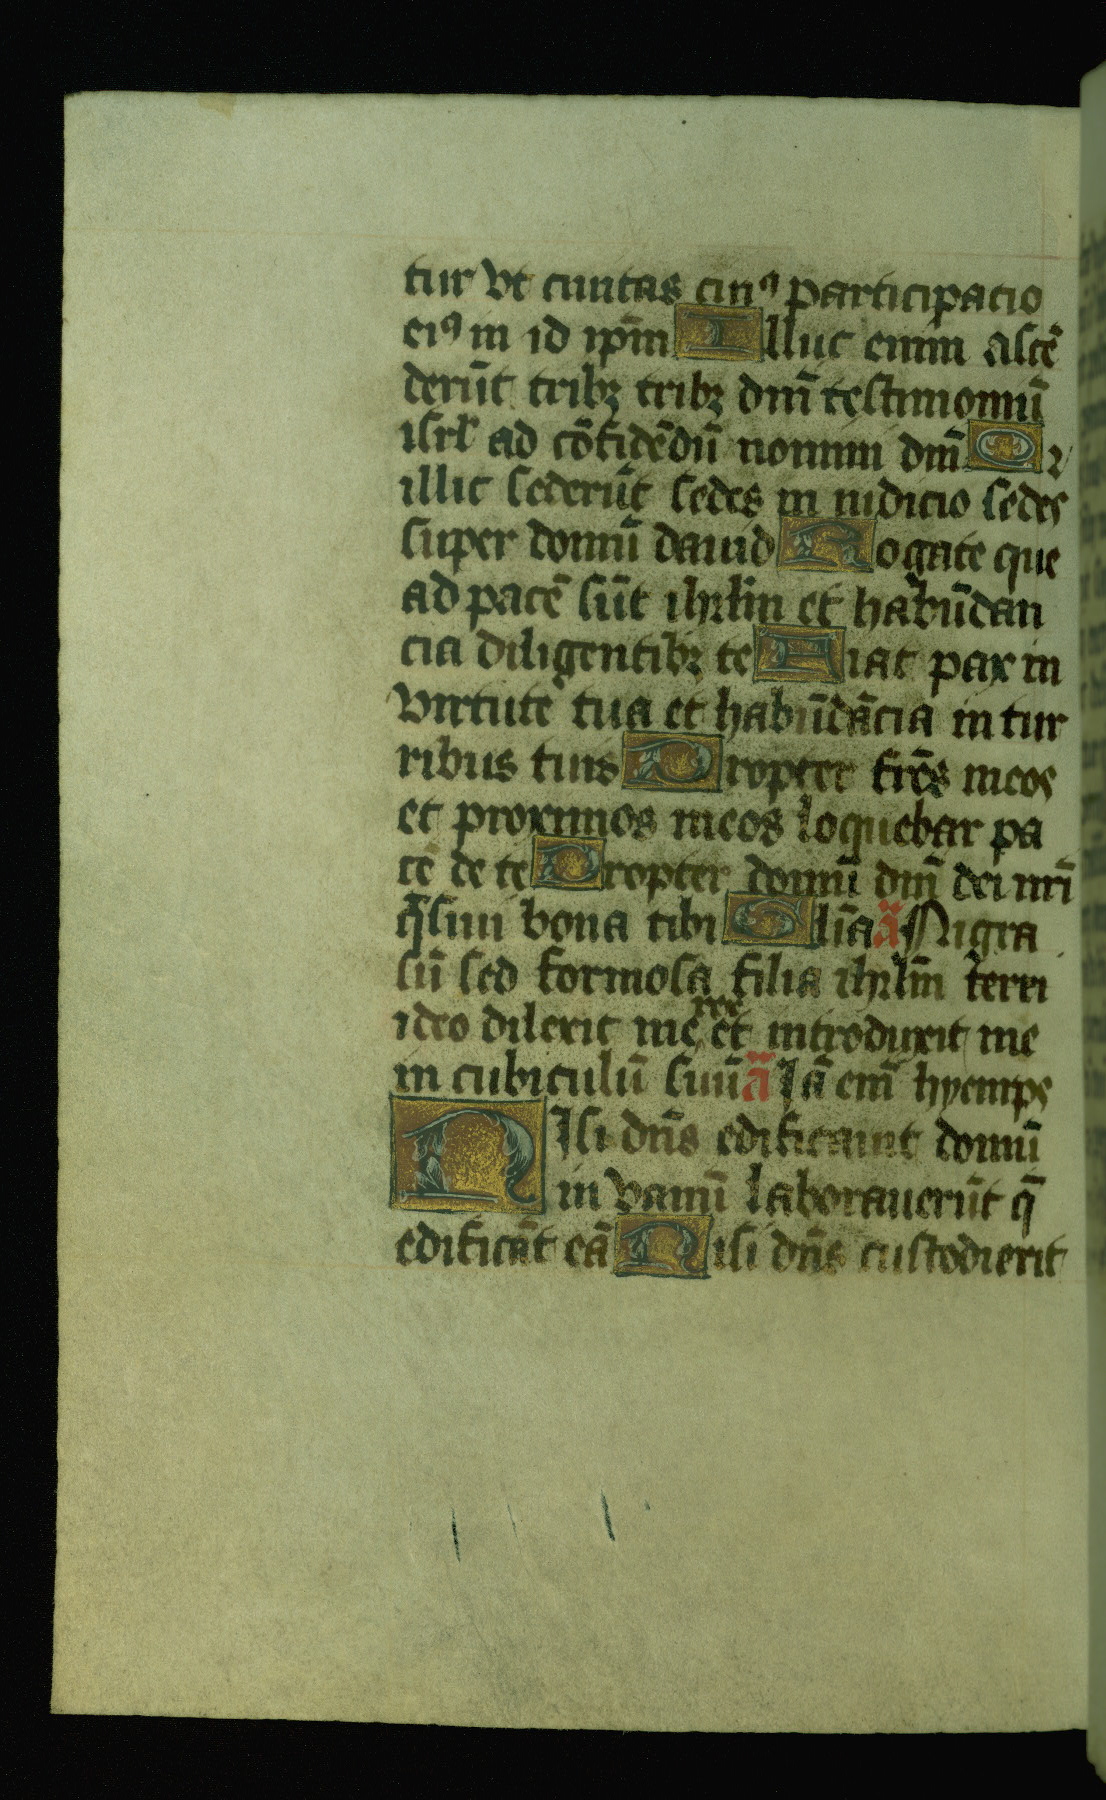 tur vt ciuitas cuiꝰ participacio
eiꝰ in id ip̄m Illuc enim ascē
derūt tribꝫ tribꝫ dn̄i testimoniū
isrl̄ ad cōfidēdū nomini dn̄i Qꝛ
illic sederūt sedes in iudicio sedes
super domū dauid Rogate que
ad pacē sūt ihrl̄m et habūdan
cia diligentibꝫ te Fiat pax in
virtute tua et habūdācia in tur
ribus tuis Propter fr̄es meos
et proximos meos loquebar pa
cē de te Propter domū dn̄i dei nr̄i
q̄siui bona tibi Gl̄ia ā Nigra
sū sed formosa filia ihrl̄m
ideo dilexit me rex et introduxit me
in cubiculū suū ā Iā em̄ hyemps
Nisi dn̄s edificauit domū
in vanū laborauerūt q̄
edificāt eā Nisi dn̄s custodierit